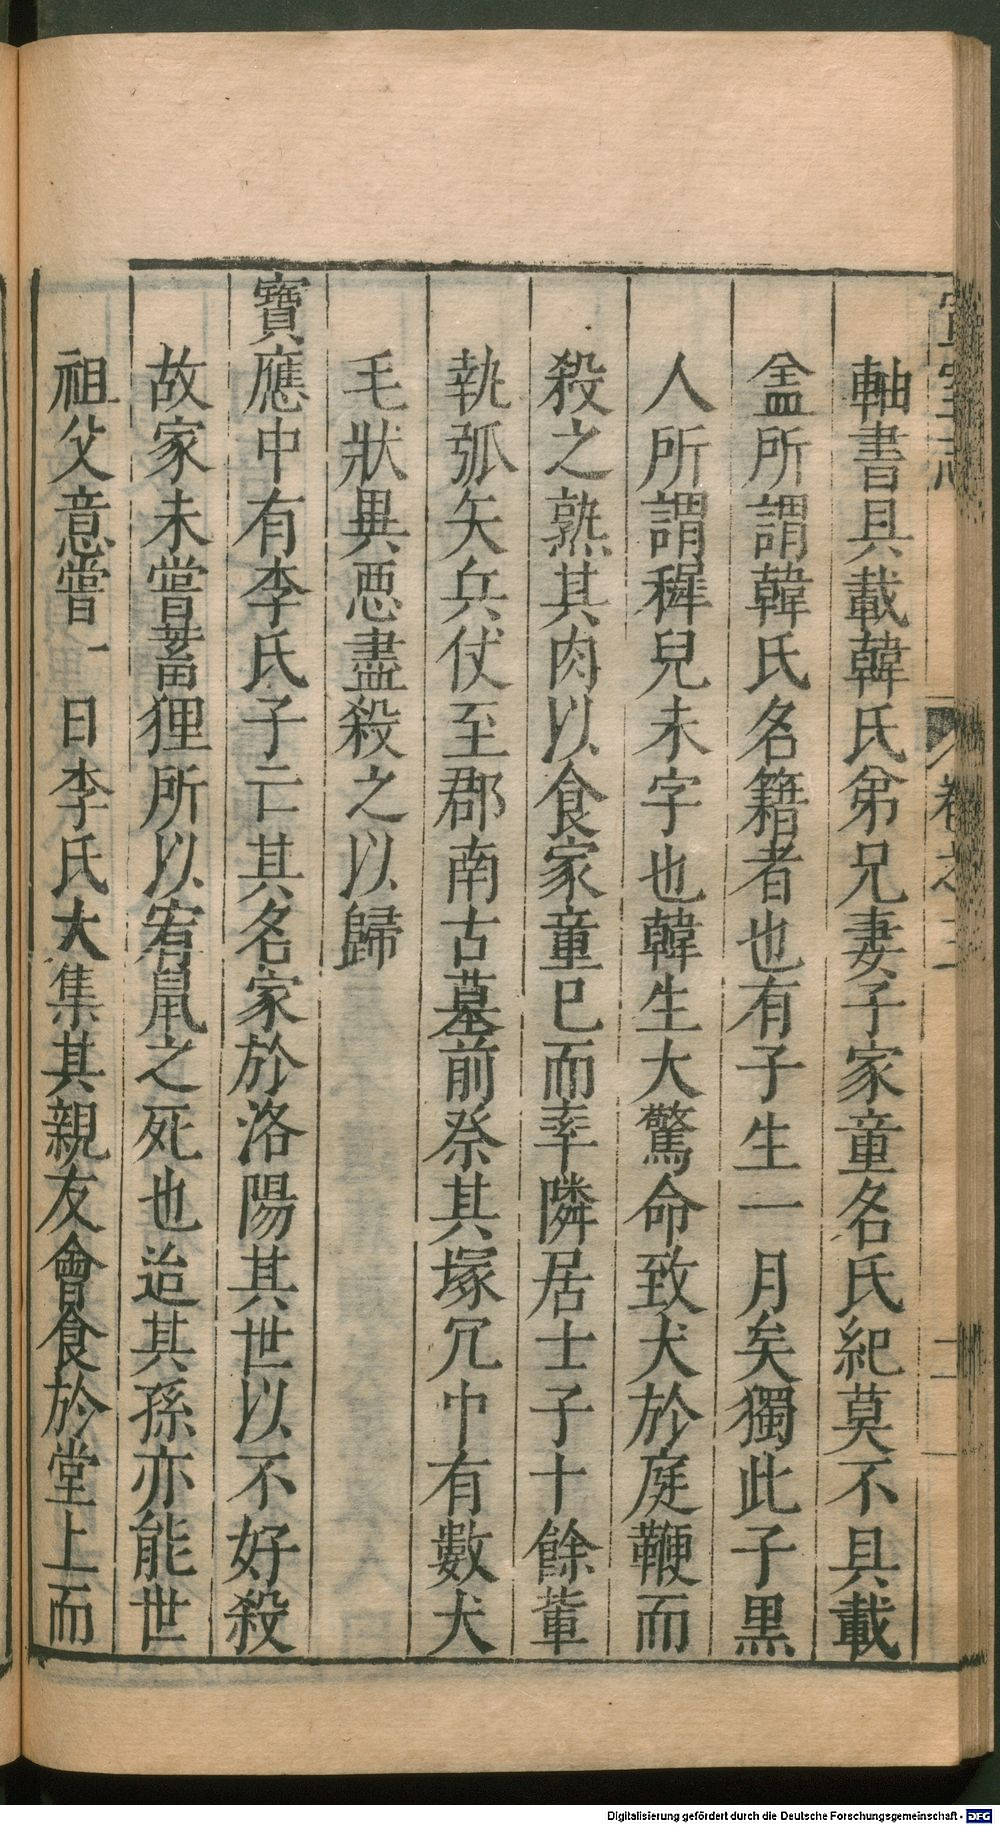 軸書具載韓氏弟兄妻子家童名氏紀莫不具載
盖所謂韓氏名籍者也有子生一月矣獨此子黑
人所謂穉兒未字也韓生大驚命致犬於庭鞭而
殺之熟其肉以食家童已而率隣居士子十餘輩
執弧矢兵仗至郡南古墓前祭其塚冗中有數犬
毛狀異悪盡殺之以歸
寶應中有李氏子亡其名家於洛陽其世以不好殺
故家未嘗蓄狸所以宥鼠之死也迨其孫亦能世
祖父意嘗一日李氏大集其親友會食於堂上而
卷之三
Digitalisierung gefördert durch die Deutsche Forschungsgemeinschaft - DFG